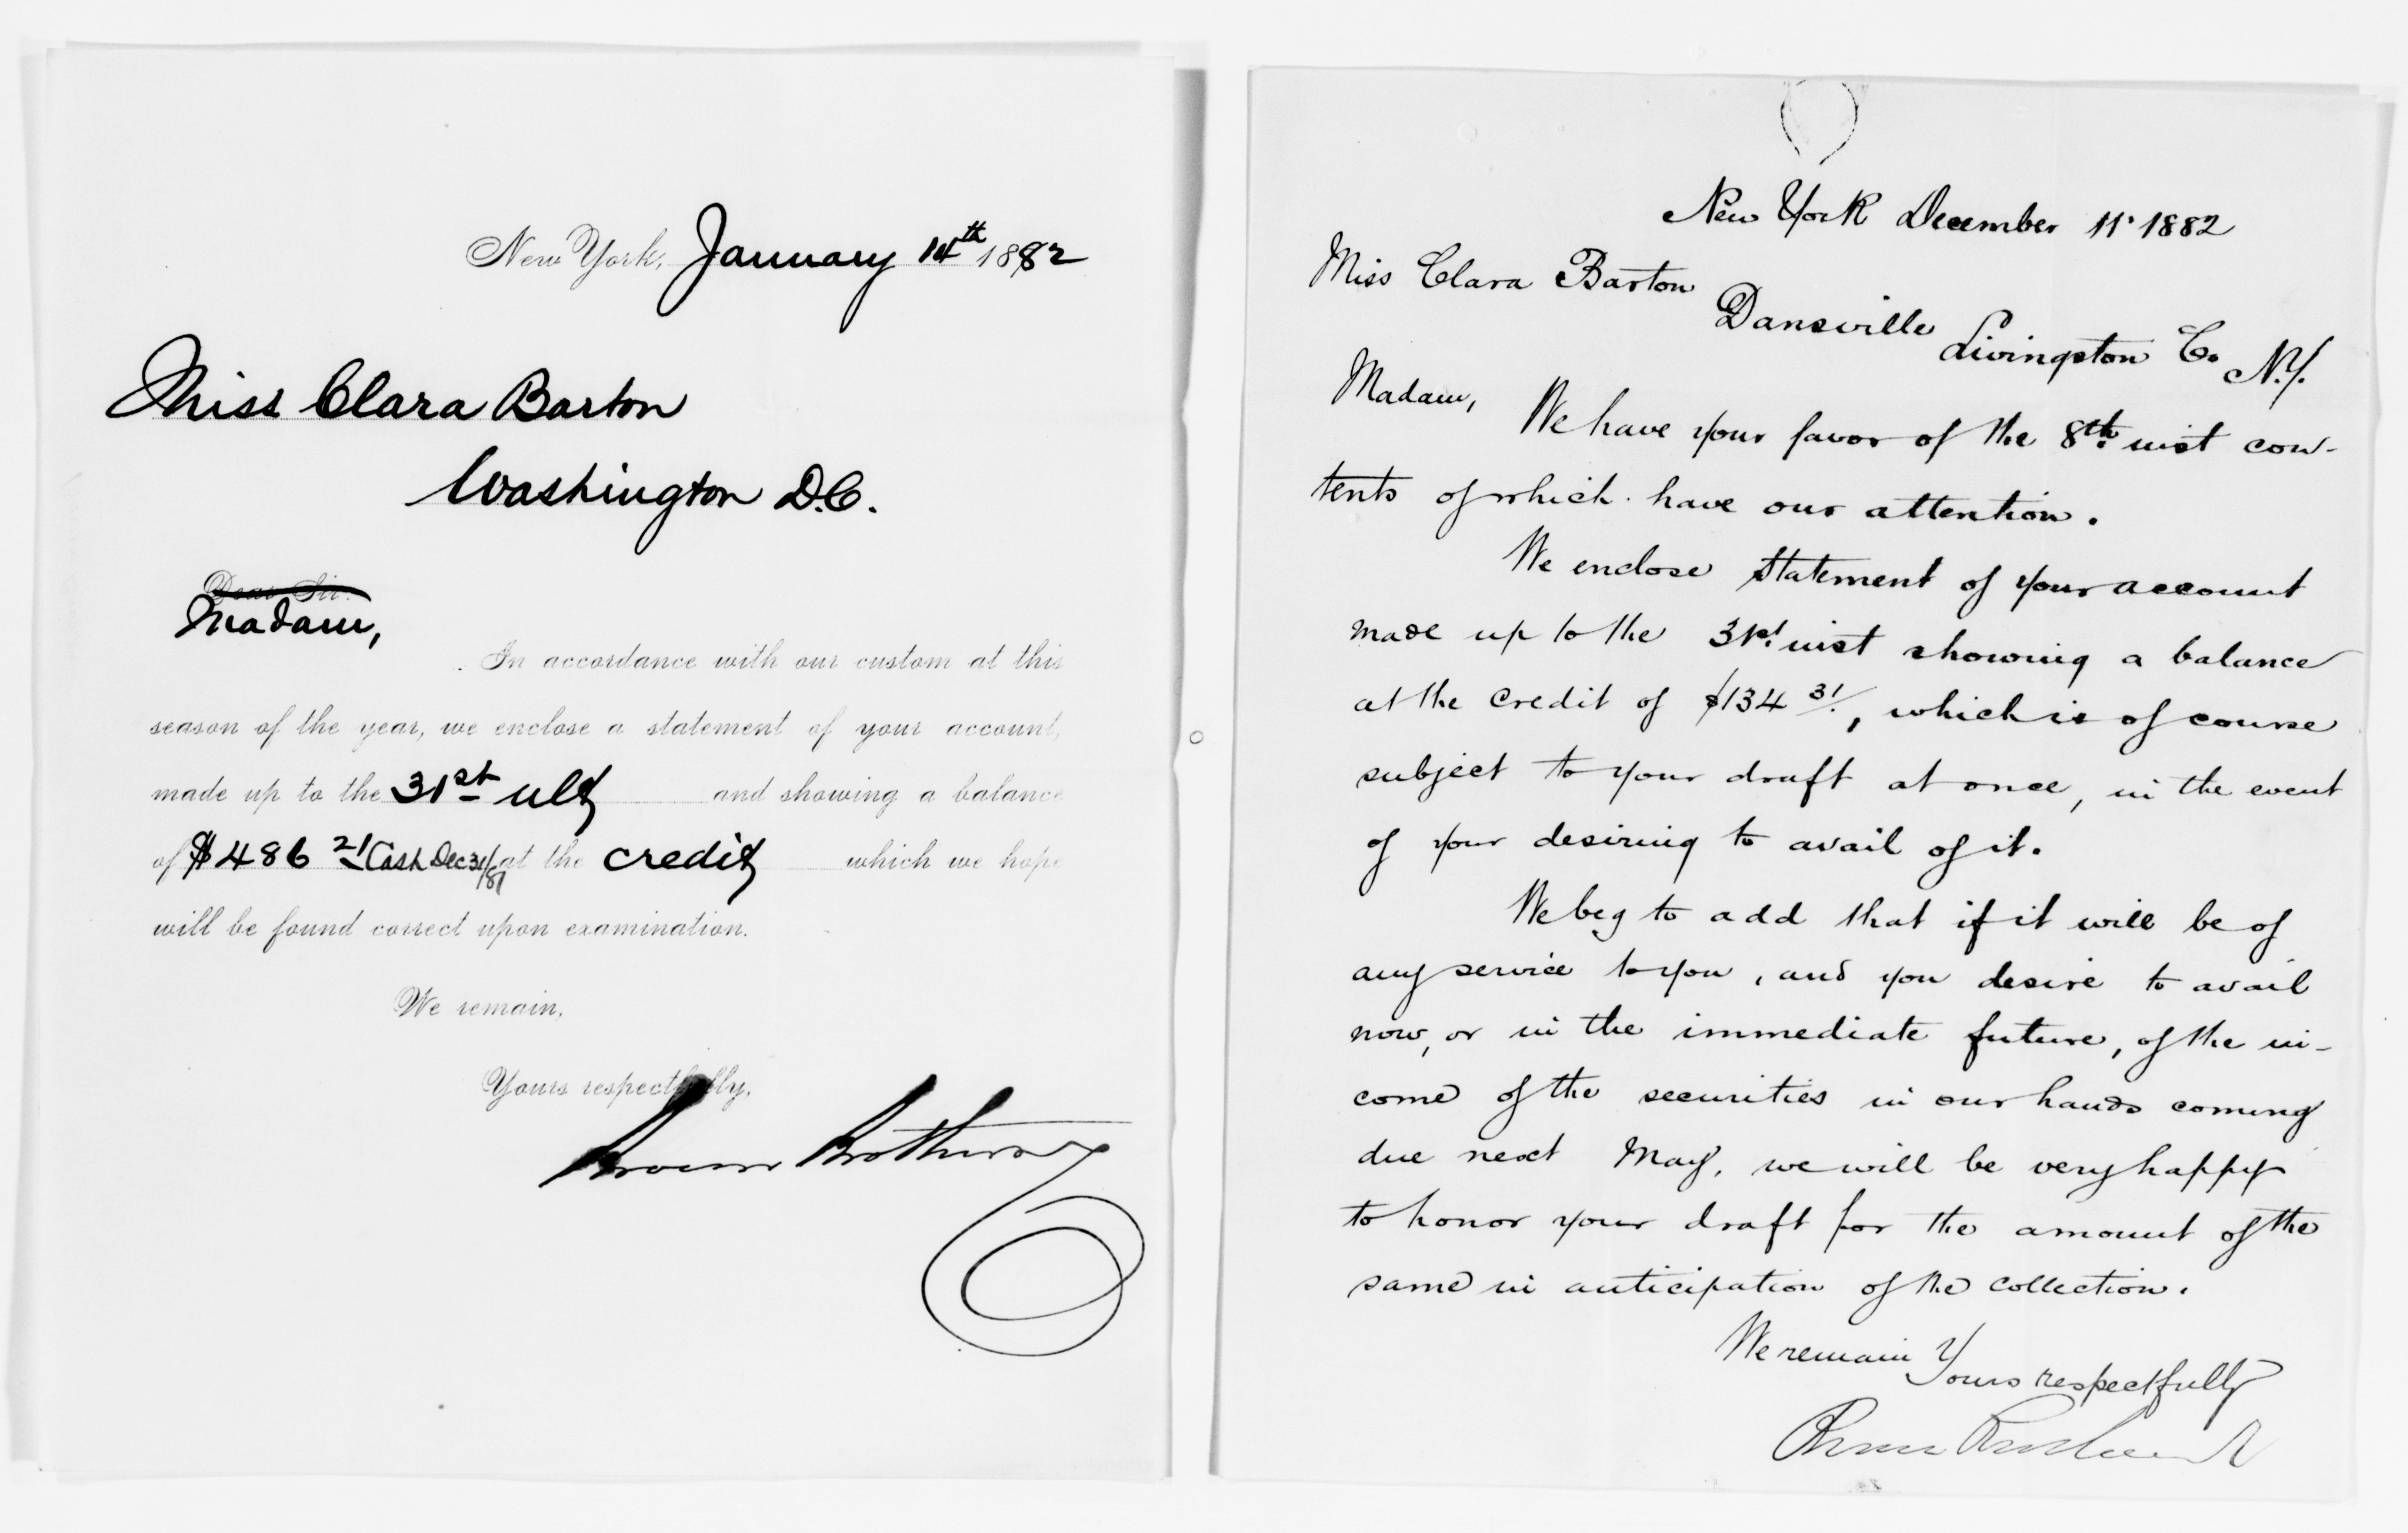 New York, January 14th 1882
Miss Clara Barton
Washington D.C.
Dear Sir:
Madam,
In accordance with our custom at this
season of the year, we enclose a statement of your account,
made up to the 31st ult and showing a balance
of $486 21 Cash Dec 31/81 at the credit which we hope
will be found correct upon examination.
We remain,
Yours respectfully,
Brown Brothers
New York December 11. 1882
Miss Clara Barton
Dansville Livingston Co. N.Y.
Madam,
We have your favor of the 8th. inst con-
tents of which have our attention.
We enclose statement of your account
made up to the 31st. inst showing a balance
at the credit of $134 31/., which is of course
subject to your draft at once, in the event
of your desiring to avail of it.
We beg to add that if it will be of
any service to you, and you desire to avail
now, or in the immediate future, of the in-
come of the securities in our hands coming
due next May, we will be very happy
to honor your draft for the amount of the
same in anticipation of the collection.
We remain
Yours respectfully
Brown Brothers